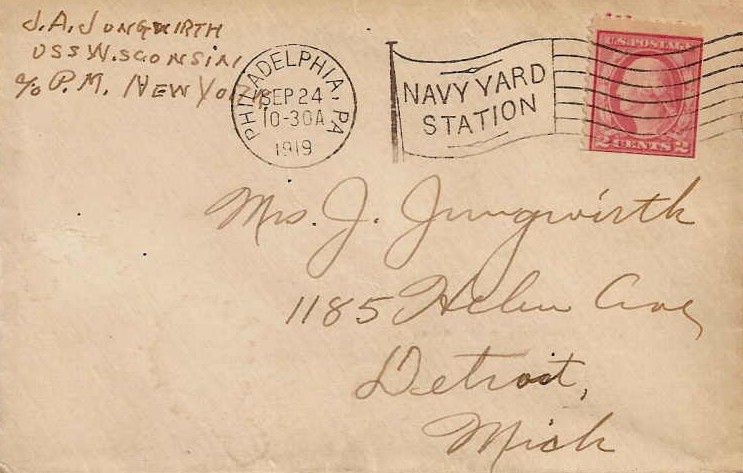 J.A. JUNGWIRTH
USS WISCONSIN
c/o P.M. NEW YORK
PHILADELPHIA, PA
SEP 24
10-30A
1919
NAVY YARD
STATION
U.S. POSTAGE
2 CENTS 2
Mrs. J. Jungwirth
1185 Helen Ave,
Detroit,
Mich